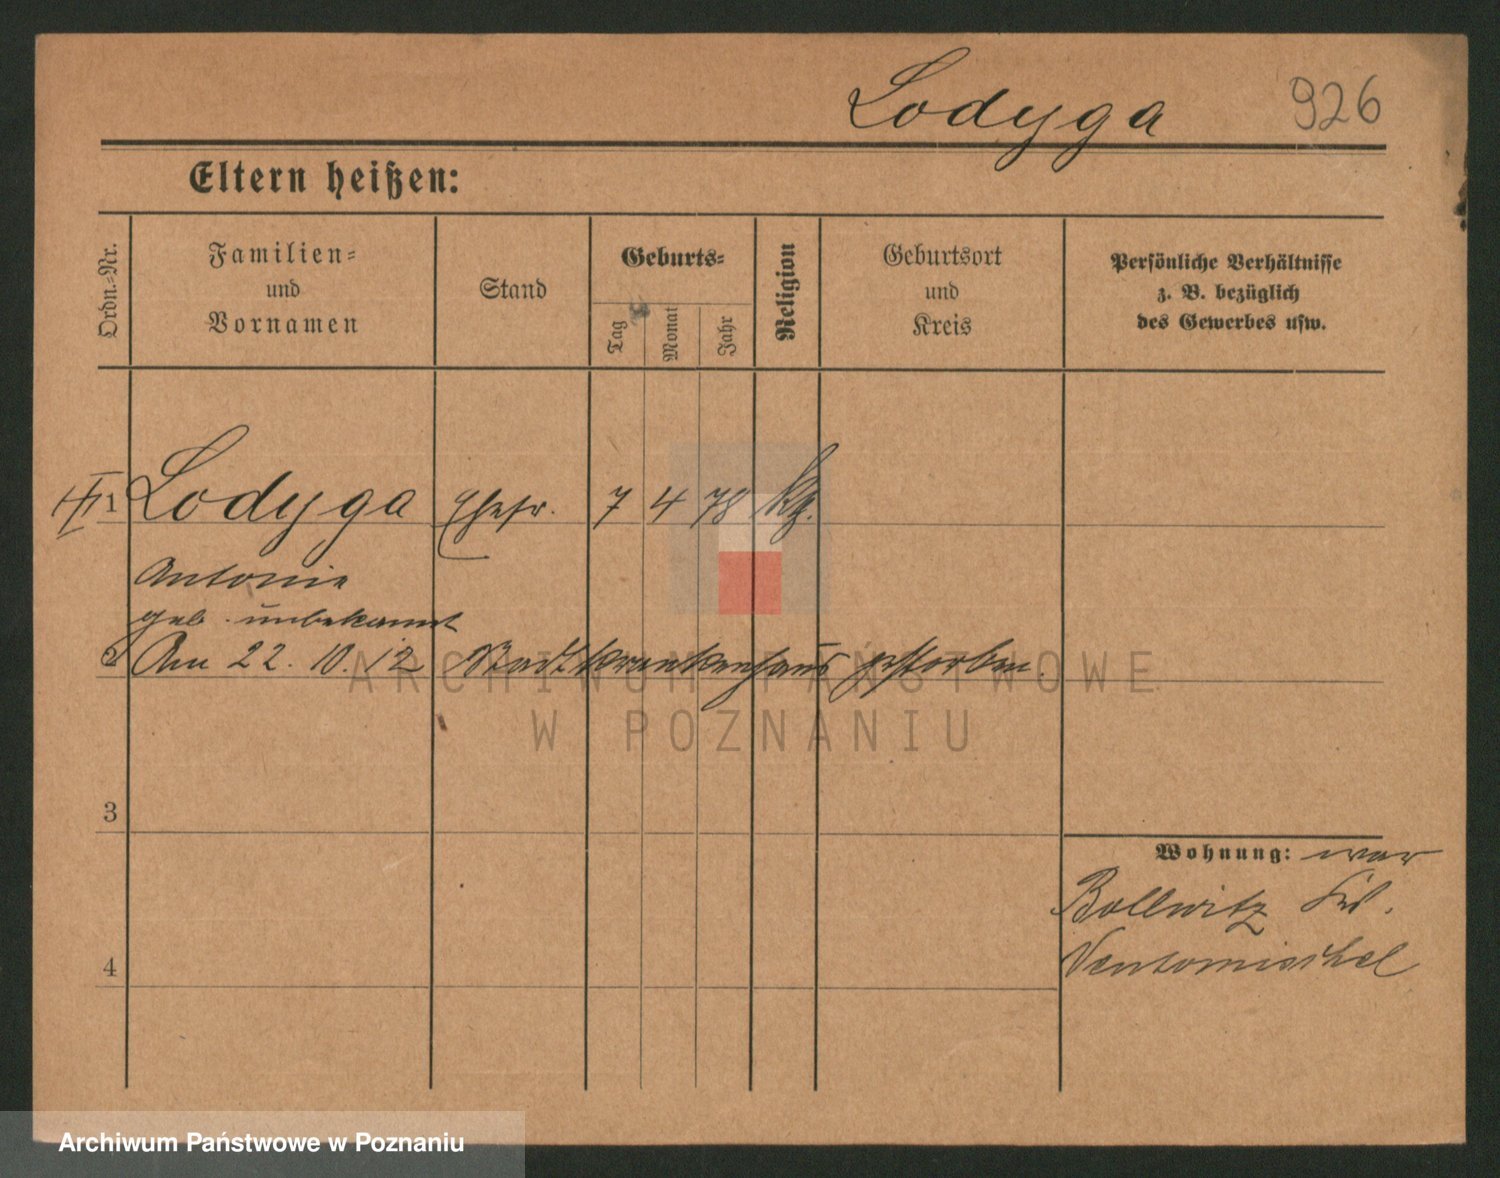 Lodyga 926
Eltern heißen:
Ordn.-Nr.
Familien-
und
Vornamen
Stand
Geburts-
Tag
Monat
Jahr
Religion
Geburtsort
und
Kreis
Persönliche Verhältnisse
z. B. bezüglich
des Gewerbes usw.
1 Lodyga Ehefr. 7 4 78 kg.
Antonie
geb. unbekannt
2 Am 22. 10. 12 Stadtkrankenhaus gestorben.
3
Wohnung: war
Bollwitz Krs.
4
ARCHIWUM PAŃSTWOWE
W POZNANIU
Archiwum Państwowe w Poznaniu